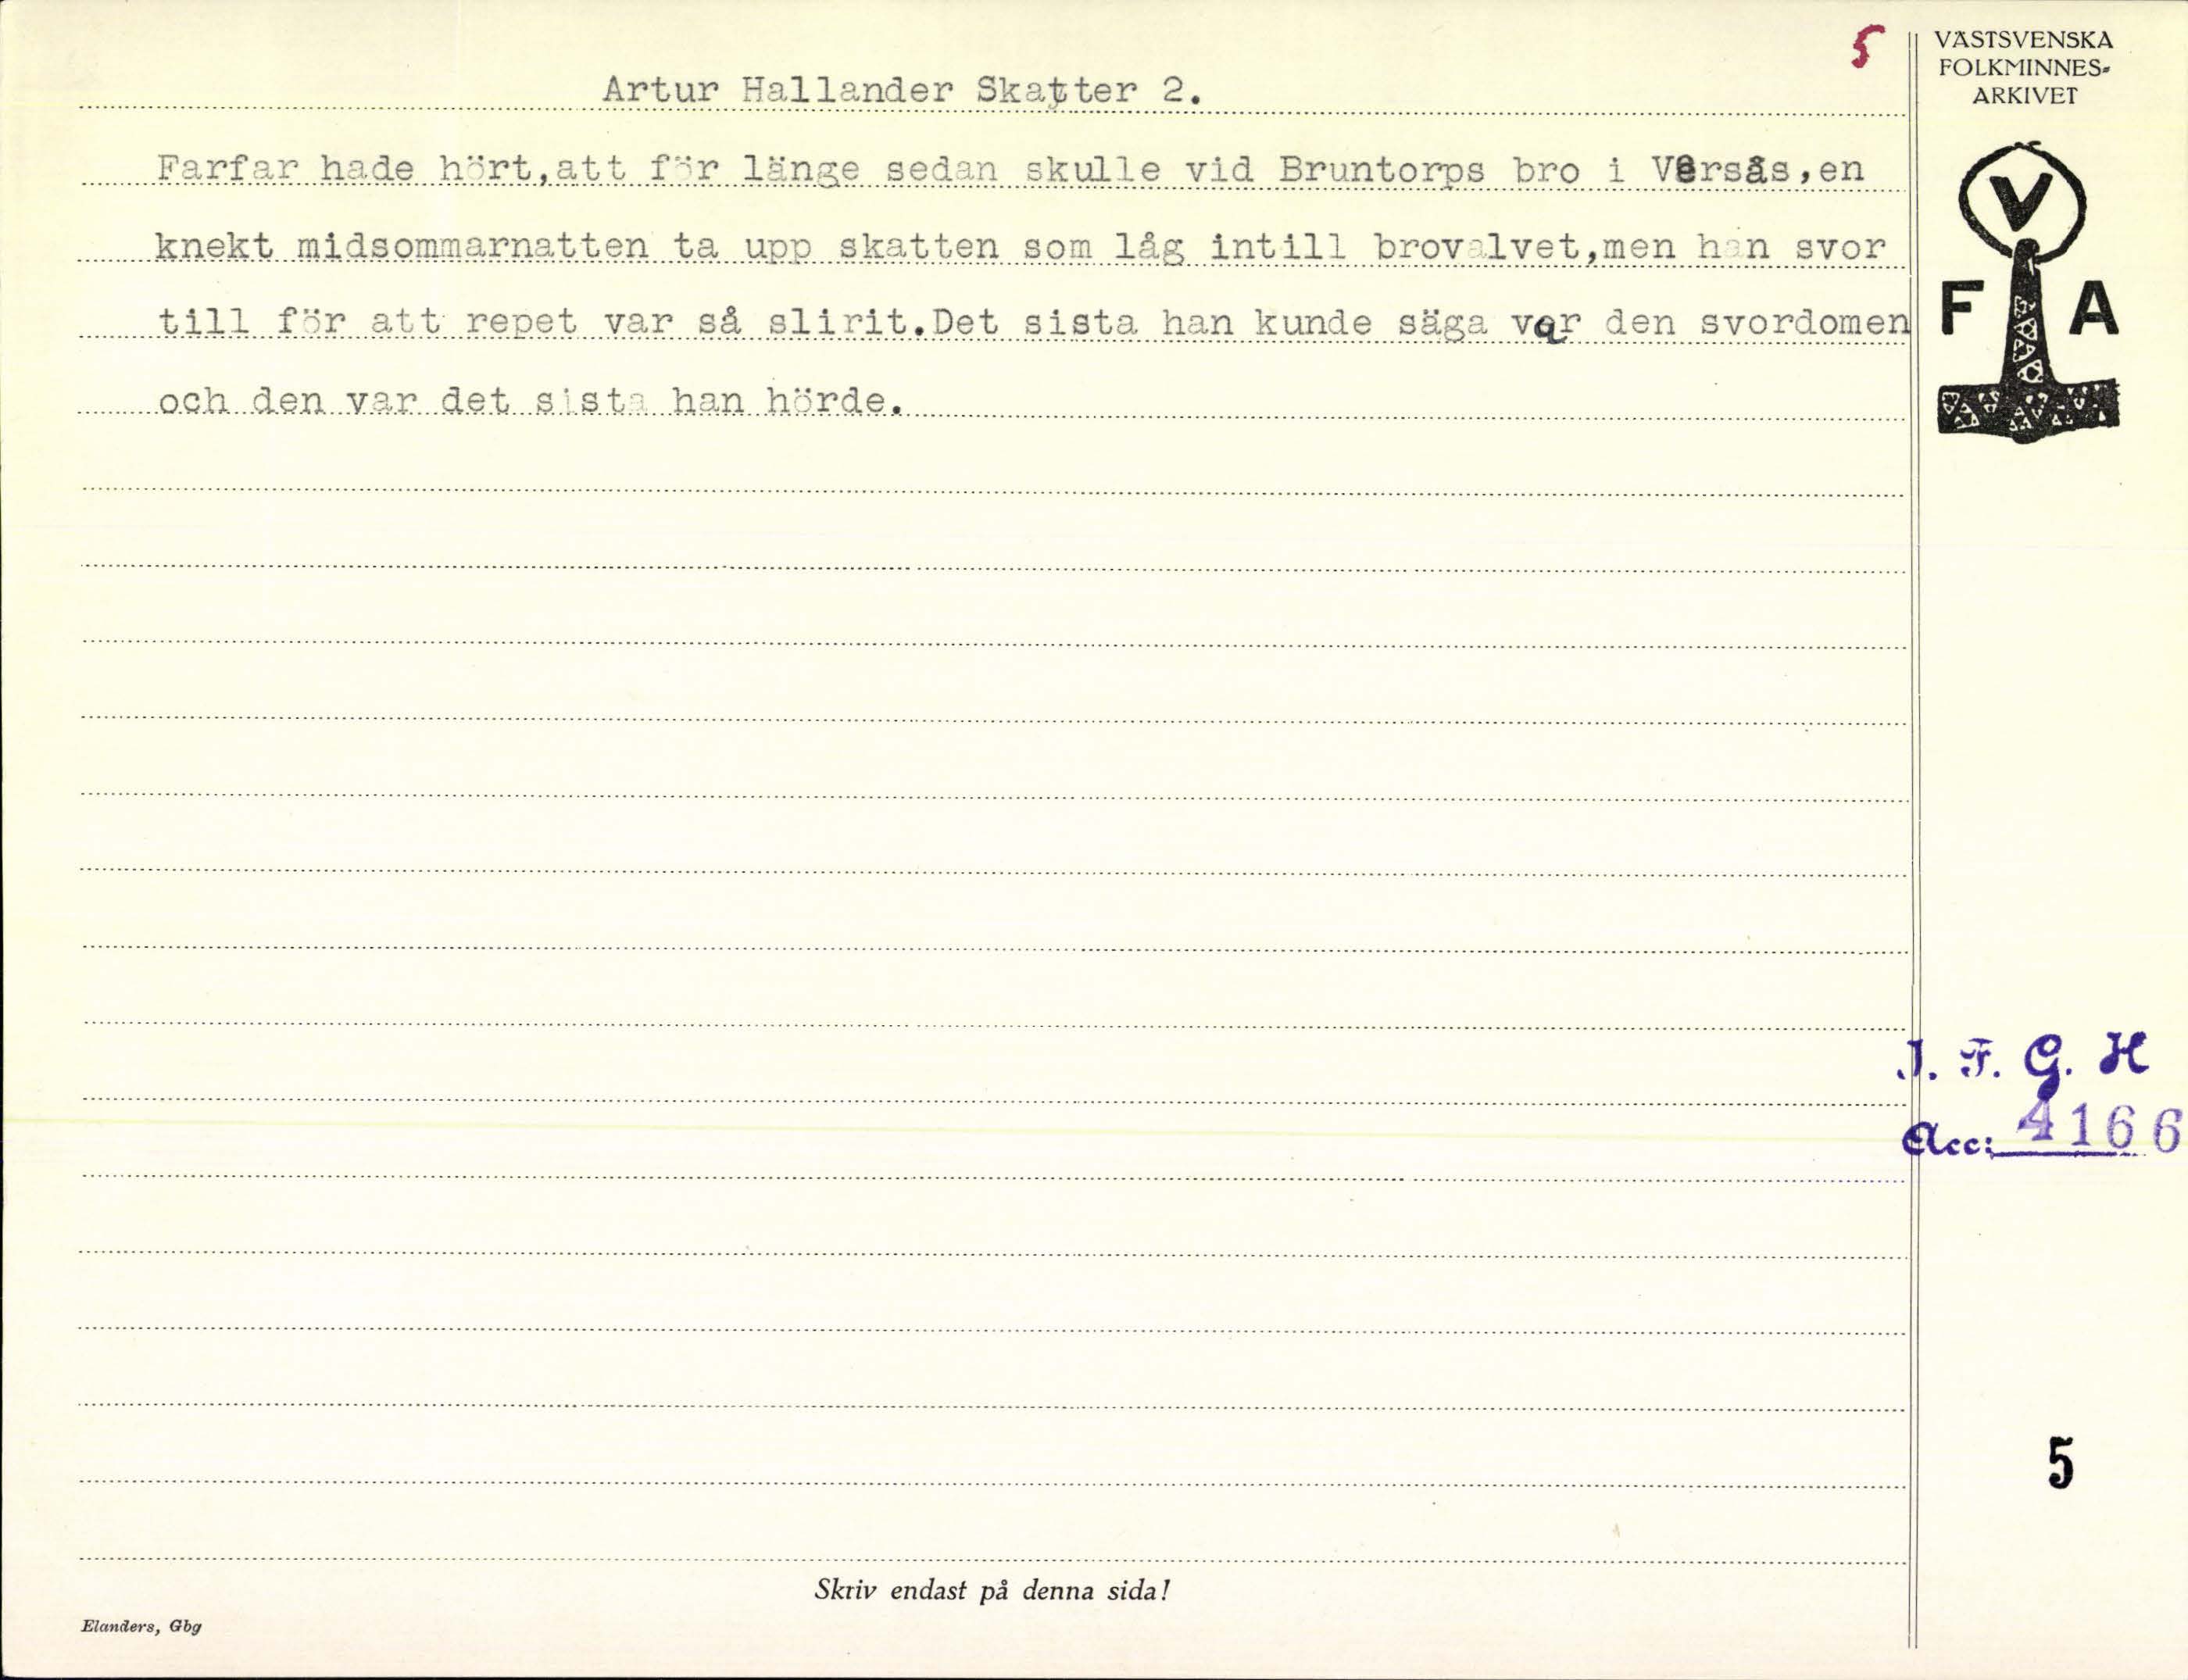 5
Artur Hallander Skatter 2.
Farfar hade hört,att för länge sedan skulle vid Bruntorps bro i Versås,en
knekt midsommarnatten ta upp skatten som låg intill brovalvet,men han svor
till för att repet var så slirit.Det sista han kunde säga var den svordomen
och den var det sista han hörde.
VÄSTSVENSKA
FOLKMINNES-
ARKIVET
V
F A
I. F. G. H
Acc: 4166
5
Skriv endast på denna sida!
Elanders, Gbg